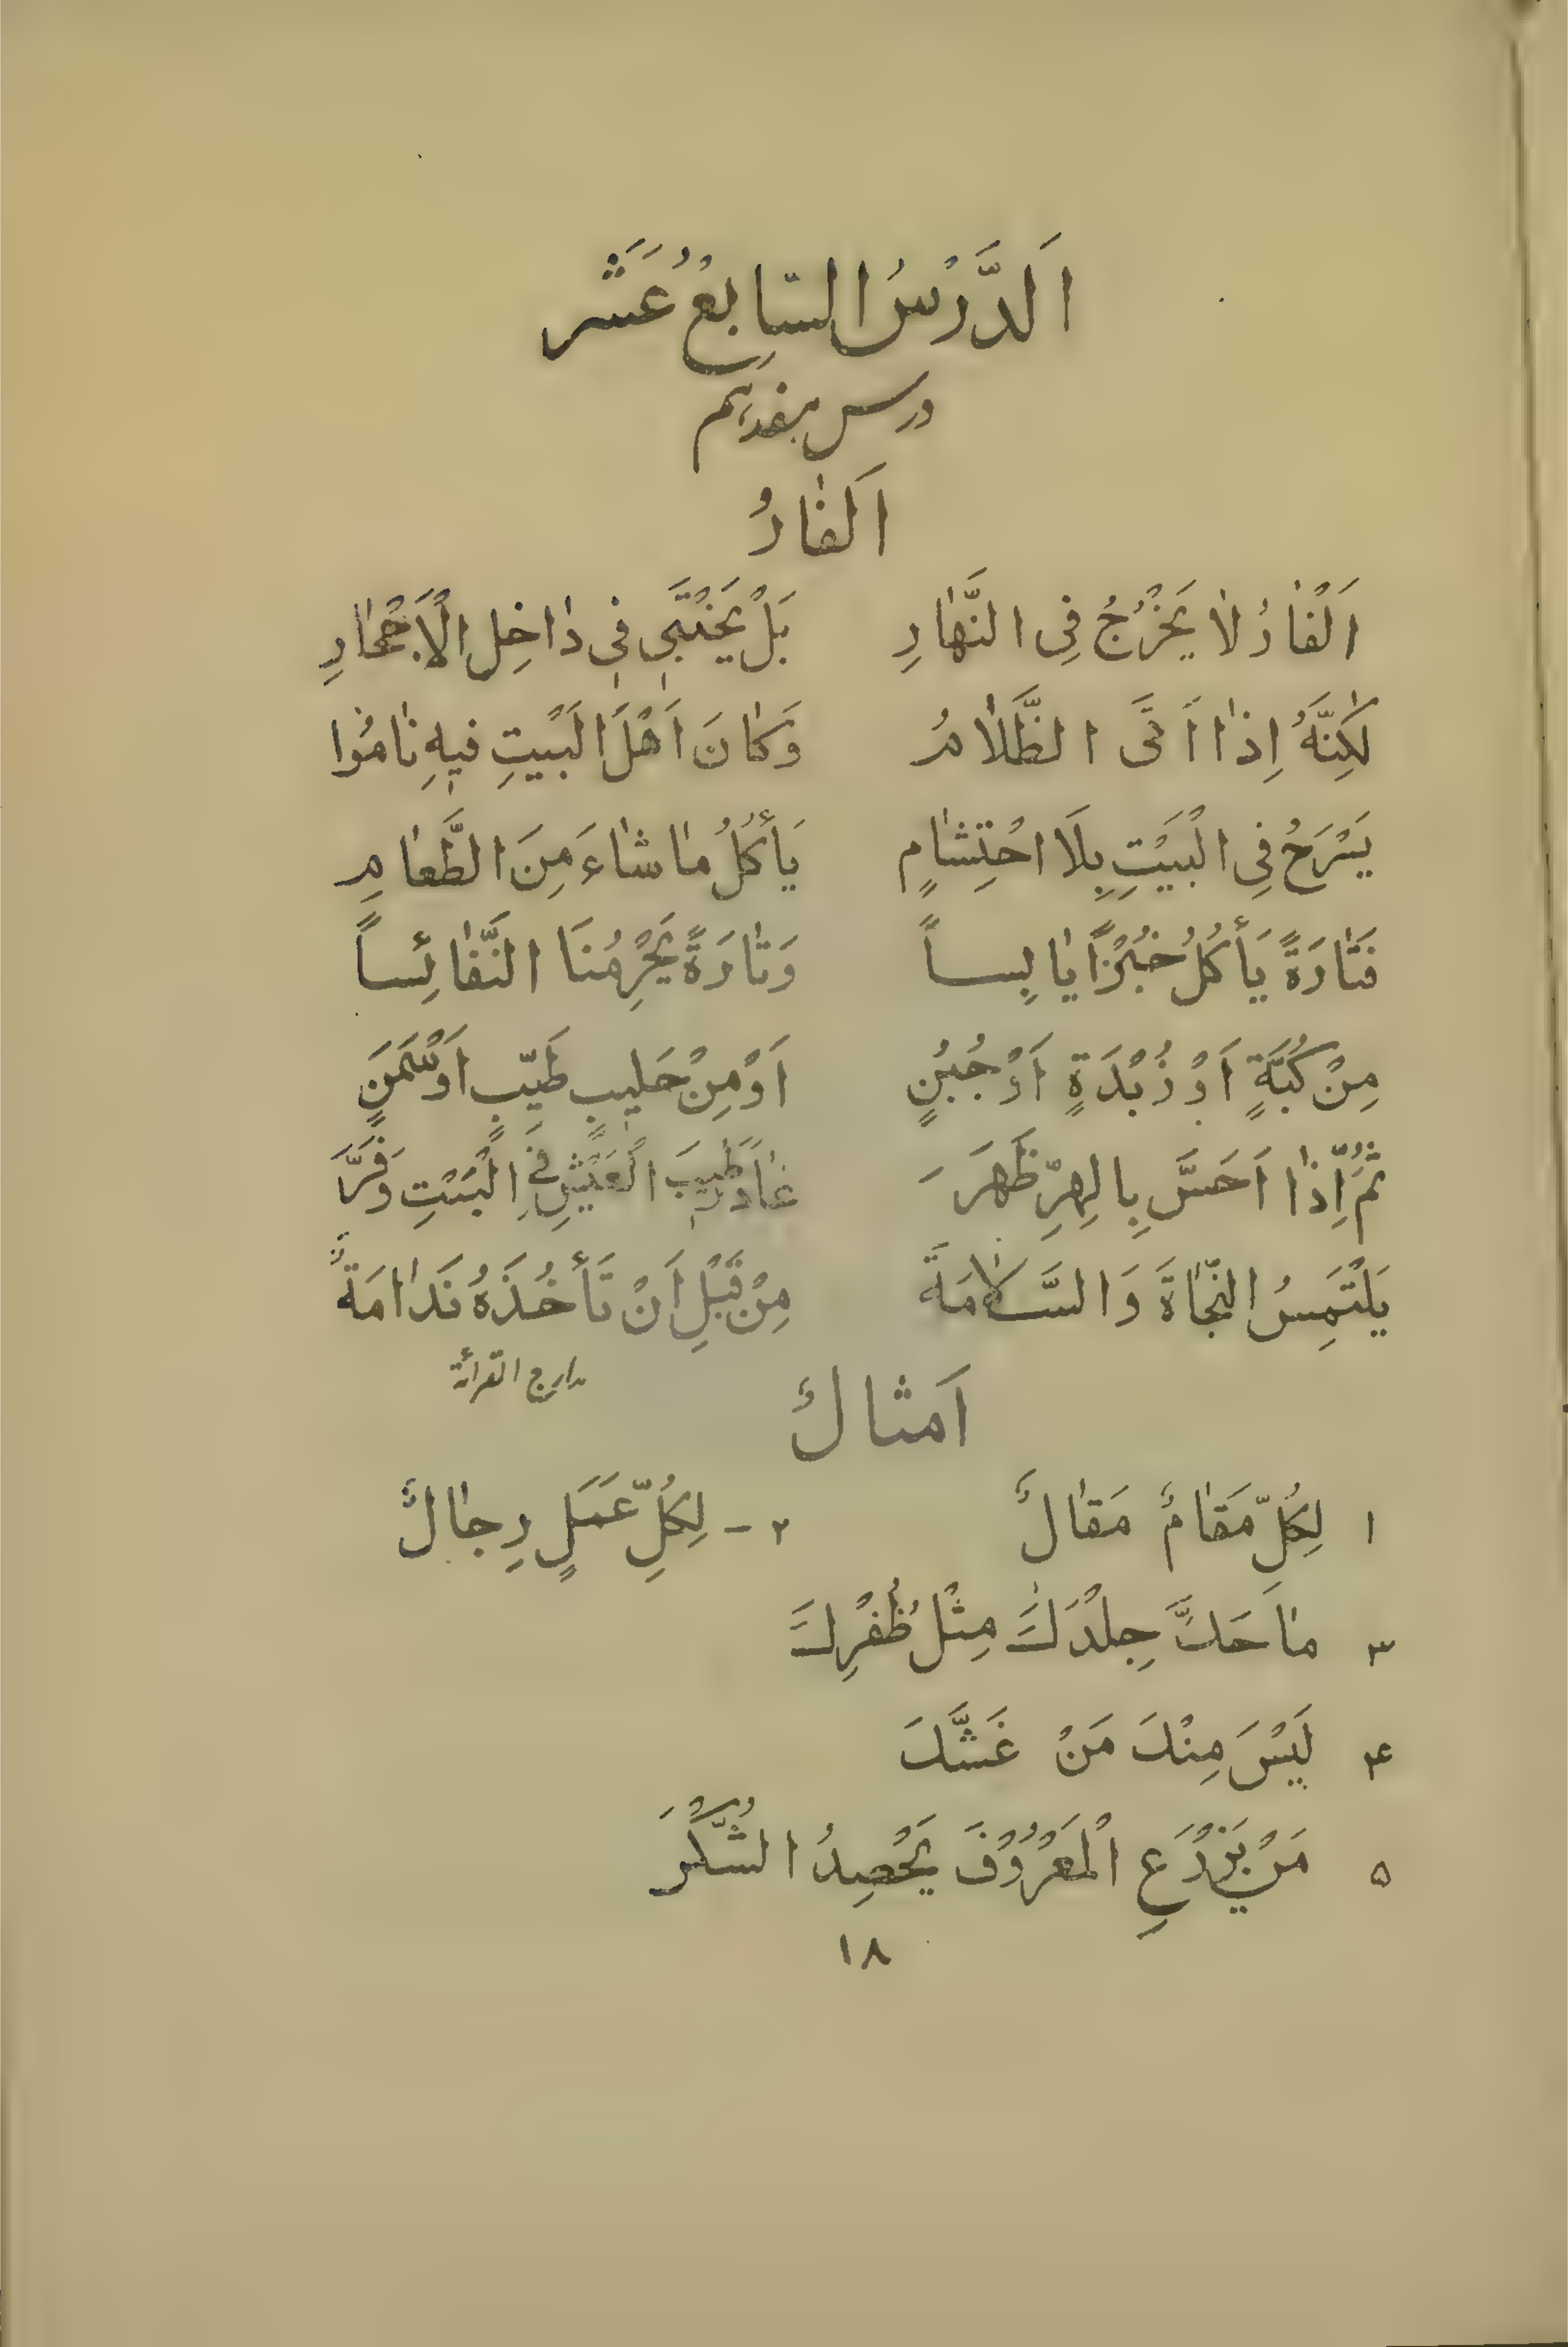 اَلدَّرْسُ السّابِعُ عَشَر
درس هفدهم
اَلفٰارُ
اَلْفٰارُ لاٰ يَخْرُجُ فِى النَّهٰارِ بَلْ يَخْتَبى فى دٰاخِلِ الْاَجْحٰارِ
لٰكِنَّهُ اِذٰا اَتَى الظَّلاٰمُ وَكٰانَ اَهْلُ الْبَيْتِ فيهِ نٰامُوا
يَسْرَحُ فِى الْبَيْتِ بِلَا احْتِشٰامٍ يَأكُلُ مٰا شٰاءَ مِنَ الطَّعٰامِ
فَتٰارَةً يَأكُلُ خُبْزًا يٰابِساً وَتٰارَةً يَحْرِمُنَا النَّفٰائِساً
مِنْ كُبَّةٍ اَوْ زُبْدَةٍ اَوْ جُبْنٍ اَوْ مِنْ حَليبٍ طَيّبٍ اَوْ سَمَنٍ
ثُمَّ اِذٰا اَحَسَّ بِالهِرِّ ظَهَرَ غٰادَرَ طيبَ الْعَيْشِ فِى الْبَيْتِ وَفَرَّ
يَلْتَمِسُ النَّجٰاةَ وَالسَّلاٰمَةَ مِنْ قَبْلِ اَنْ تَأخُذَهُ نَدٰامَةً
مدارج القرائة
اَمثالٌ
١ لِكُلِّ مَقٰامٌ مَقٰالٌ ٢ - لِكُلِّ عَمَلٍ رِجٰالٌ
٣ مٰا حَكَّ جِلْدَكَ مِثْلُ ظُفْرِكَ
۴ لَيْسَ مِنْكَ مَنْ غَشَّكَ
۵ مَنْ يَزْرَعِ الْمَعْرُوْفَ يَحْصِدُ الشُّكْرَ
١٨